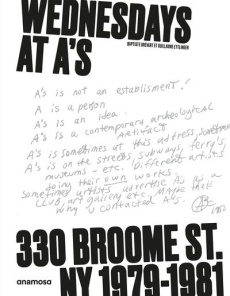 WEDNESDAYS
AT A'S
BAPTISTE BREBART ET GUILLAUME ETTLINGER
A's is not an establisment!
A is a person
A's is an idea.
A's is a contemporary archeological
Artifact
A's is sometimes at this address, sometimes
A's is on the streets, subways, ferry's
museums - etc. Different artists
doing their own works
sometimes artists advertise it as a
club, art gallery etc. Maybe thats
why u contacted A's.
330 BROOME ST.
anamosa
NY 1979-1981